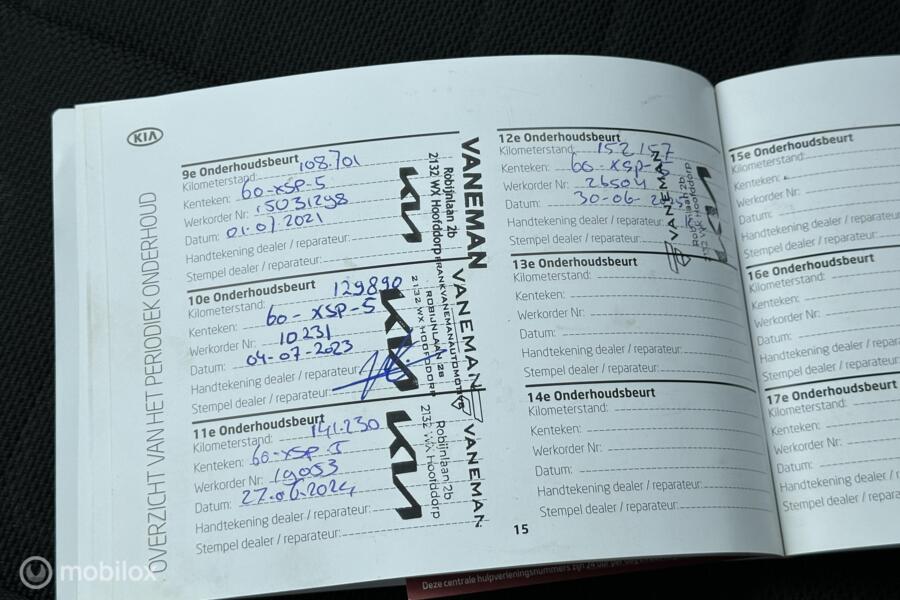 KIA
OVERZICHT VAN HET PERIODIEK ONDERHOUD
9e Onderhoudsbeurt
Kilometerstand: 108.701
Kenteken: 60-XSP-5
Werkorder Nr: 15031298
Datum: 01.07.2021
Handtekening dealer / reparateur:
Stempel dealer / reparateur:
VANEMAN
Robijnlaan 2b
2132 WX Hoofddorp
KIA
10e Onderhoudsbeurt
Kilometerstand: 129890
Kenteken: 60-XSP-5
Werkorder Nr: 10231
Datum: 04-07-2023
Handtekening dealer / reparateur:
Stempel dealer / reparateur:
VANEMAN
FRANKVANEMANAUTOMOTIVE
ROBIJNLAAN 2B
2132 WX HOOFDDORP
KIA
11e Onderhoudsbeurt
Kilometerstand: 141.230
Kenteken: 60-XSP-5
Werkorder Nr: 19053
Datum: 27.06.2024
Handtekening dealer / reparateur:
Stempel dealer / reparateur:
VANEMAN
Robijnlaan 2b
2132 WX Hoofddorp
KIA
12e Onderhoudsbeurt
Kilometerstand: 152.157
Kenteken: 60-XSP-
Werkorder Nr: 26504
Datum: 30-06-2025
Handtekening dealer / reparateur:
Stempel dealer / reparateur:
VANEMAN
Robijnlaan 2b
2132 WX Hoofddorp
13e Onderhoudsbeurt
Kilometerstand:
Kenteken:
Werkorder Nr:
Datum:
Handtekening dealer / reparateur:
Stempel dealer / reparateur:
14e Onderhoudsbeurt
Kilometerstand:
Kenteken:
Werkorder Nr:
Datum:
Handtekening dealer / reparateur:
Stempel dealer / reparateur:
15
15e Onderhoudsbeurt
Kilometerstand:
Kenteken:
Werkorder Nr:
Datum:
Handtekening dealer / reparateur
Stempel dealer / reparateur:
16e Onderhoudsbeurt
Kilometerstand:
Kenteken:
Werkorder Nr:
Datum:
Handtekening dealer / reparate
Stempel dealer / reparateur:
17e Onderhoudsbeurt
Kilometerstand:
Kenteken:
Werkorder Nr:
Datum:
Handtekening dealer / repara
Stempel dealer / reparate
Deze centrale hulpverleningsnummers zijn 24 uur per dag
mobilox